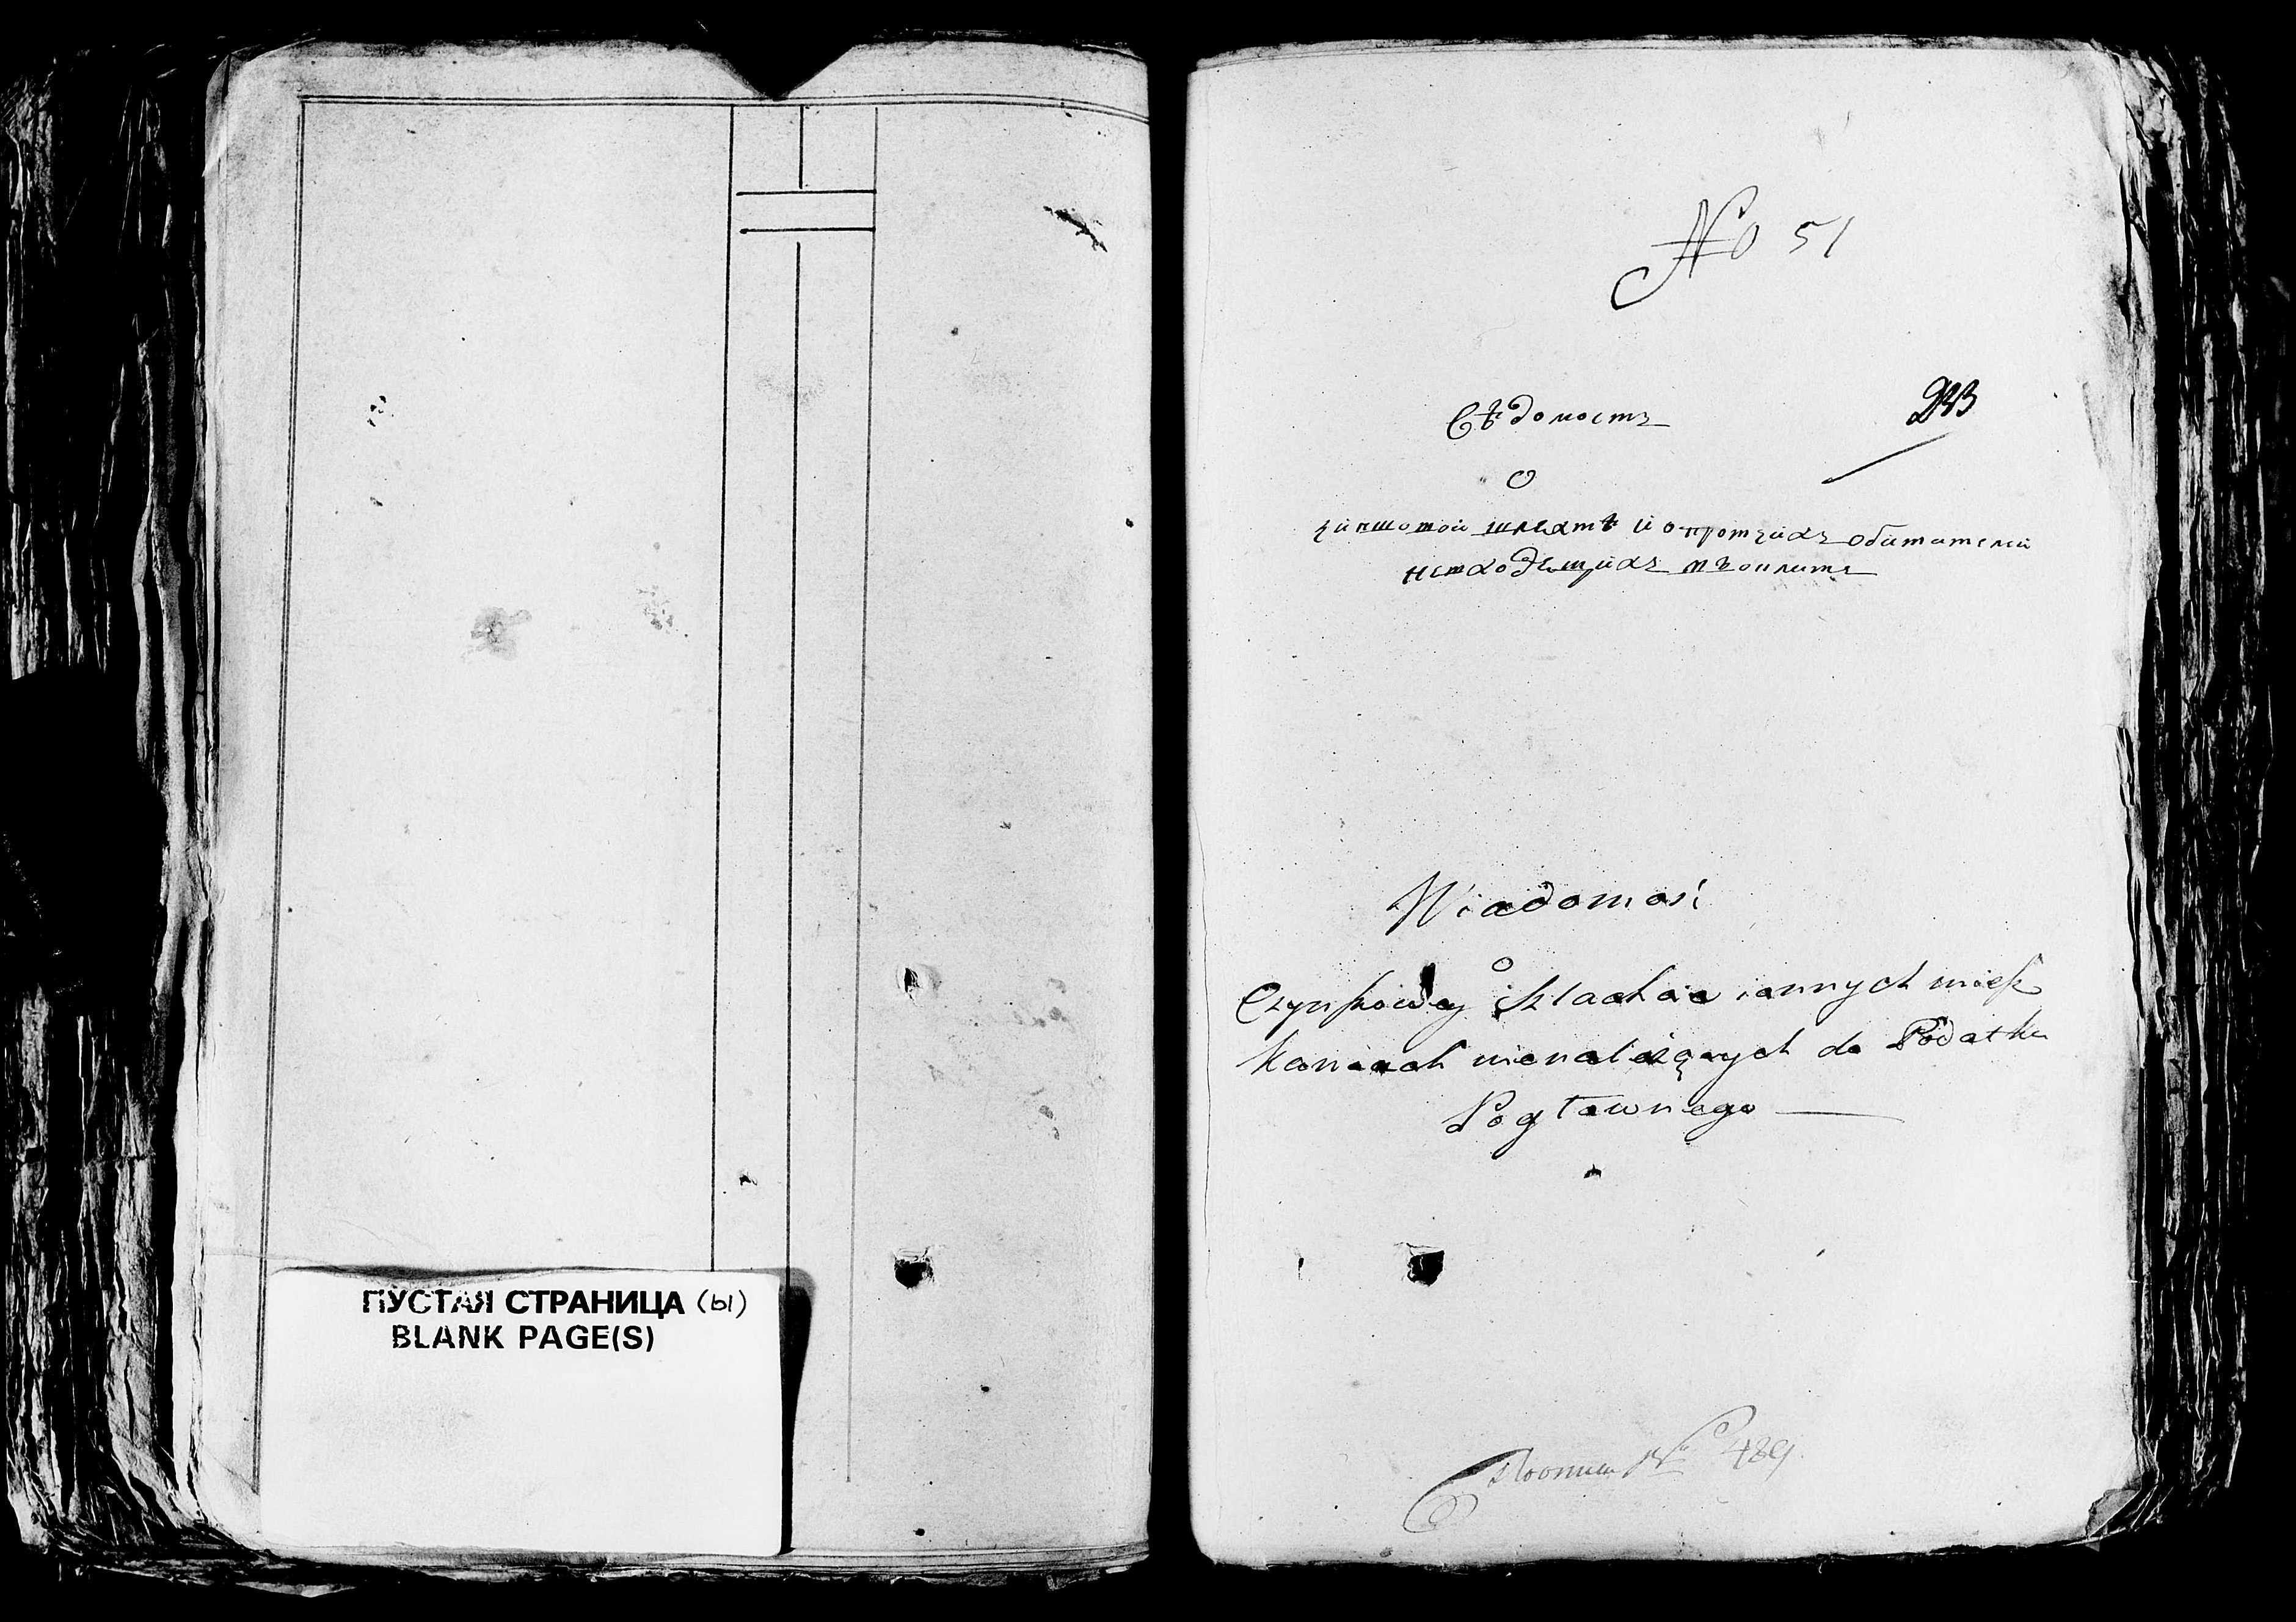 ПУСТАЯ СТРАНИЦА (ы)
BLANK PAGE(S)
No 51
233
Вѣдомостъ
О
чиншовой шляхтѣ и о протчихъ обитателей
невходещихъ въ оплитъ
Wiadomość
o
Czynszowey Szlachcie i innych miesz
kancach nienależących do Podatku
Pogłownego
No 489